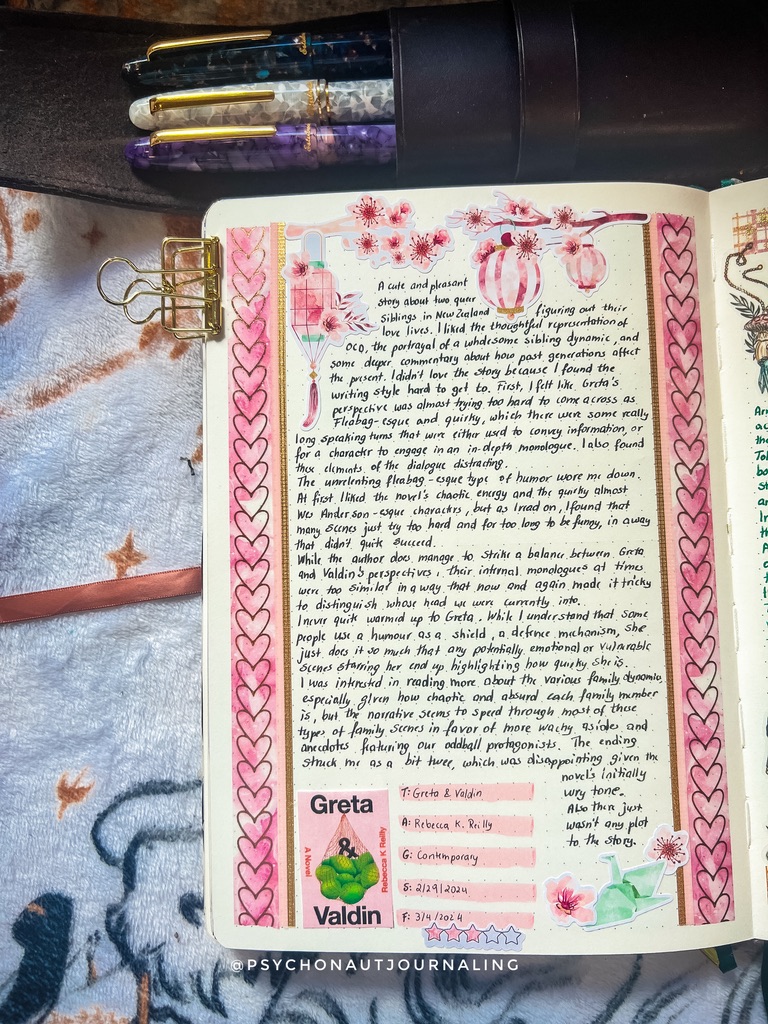 A cute and pleasant
story about two queer
siblings in New Zealand figuring out their
love lives. I liked the thoughtful representation of
OCD, the portrayal of a wholesome sibling dynamic, and
some deeper commentary about how past generations affect
the present. I didn't love the story because I found the
writing style hard to get to. First, I felt like Greta's
perspective was almost trying too hard to come across as
Fleabag-esque and quirky, which there were some really
long speaking turns that were either used to convey information, or
for a character to engage in an in-depth monologue. I also found
these elements of the dialogue distracting.
The unrelenting fleabag-esque type of humor wore me down.
At first I liked the novel's chaotic energy and the quirky almost
Wes Anderson-esque characters, but as I read on, I found that
many scenes just try too hard and for too long to be funny, in a way
that didn't quite succeed.
While the author does manage to strike a balance between Greta
and Valdin's perspectives, their internal monologues at times
were too similar in a way that now and again made it tricky
to distinguish whose head we were currently into.
I never quite warmed up to Greta. While I understand that some
people use a humour as a shield, a defence mechanism, she
just does it so much that any potentially emotional or vulnerable
scenes starring her end up highlighting how quirky she is.
I was interested in reading more about the various family dynamic,
especially given how chaotic and absurd each family member
is, but the narrative seems to speed through most of these
types of family scenes in favor of more wacky asides and
anecdotes featuring our oddball protagonists. The ending
struck me as a bit twee, which was disappointing given the
novel's initially
wry tone.
Also there just
wasn't any plot
to the story.
Greta
&
Valdin
A Novel
Rebecca K Reilly
T: Greta & Valdin
A: Rebecca K. Reilly
G: Contemporary
S: 2/29/2024
F: 3/4/2024
@PSYCHONAUTJOURNALING